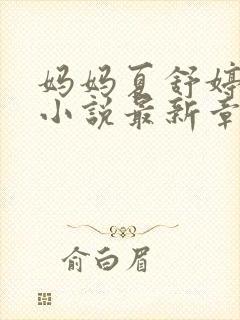 妈妈夏舒婷
小说最新章
俞白眉